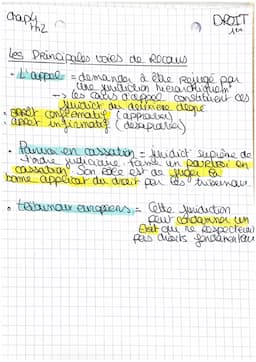 chap4
Th2
DROIT
1ère
Les Principales voies de Recours
- L'appel = demander à être rejugé par
une juridiction hiérarchiquem
-> les cours d'appel constituent des
juridict du deuxième degré
• arrêt confirmatif (approuver)
• arrêt infirmatif (désapprouver)
• Pourvoi en cassation = juridict suprême de
l'ordre judiciaire. forme un pourvoi en
cassation. Son rôle est de juger la
bonne applicat du droit par les tribunaux
• tribunaux européens = Cette juridiction
peut condamner un
État qui ne respecterait
pas droits fondamentaux